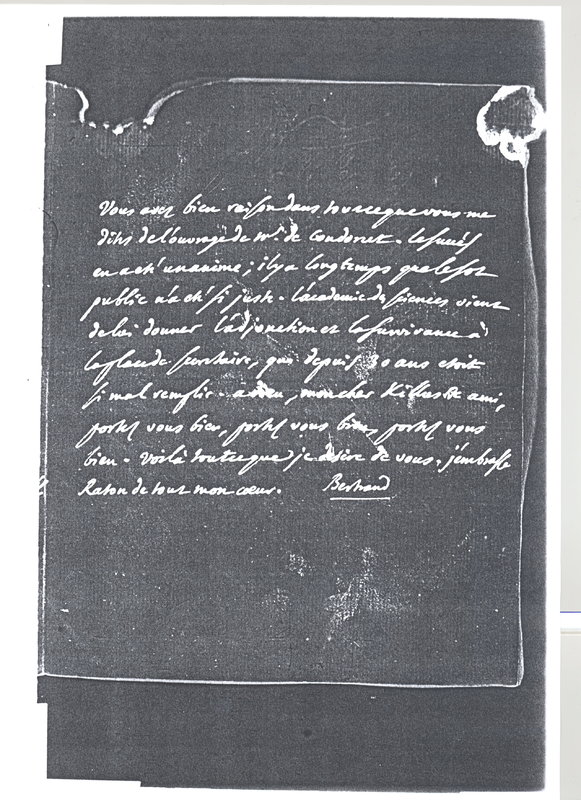 Vous avez bien raison dans tout ce que vous me
dites de l'ouvrage de Mr. de Condorcet. le succès
en a été unanime; il y a longtemps que le sot
public n'a été si juste. l'académie des sciences vient
de lui donner l'adjonction et la survivance à
la place de secretaire, qui depuis 30 ans etoit
si mal remplie. adieu, mon cher & illustre ami,
portez vous bien, portez vous bien, portez vous
bien. voilà tout ce que je desire de vous. j'embrasse
Raton de tout mon cœur. Bertrand